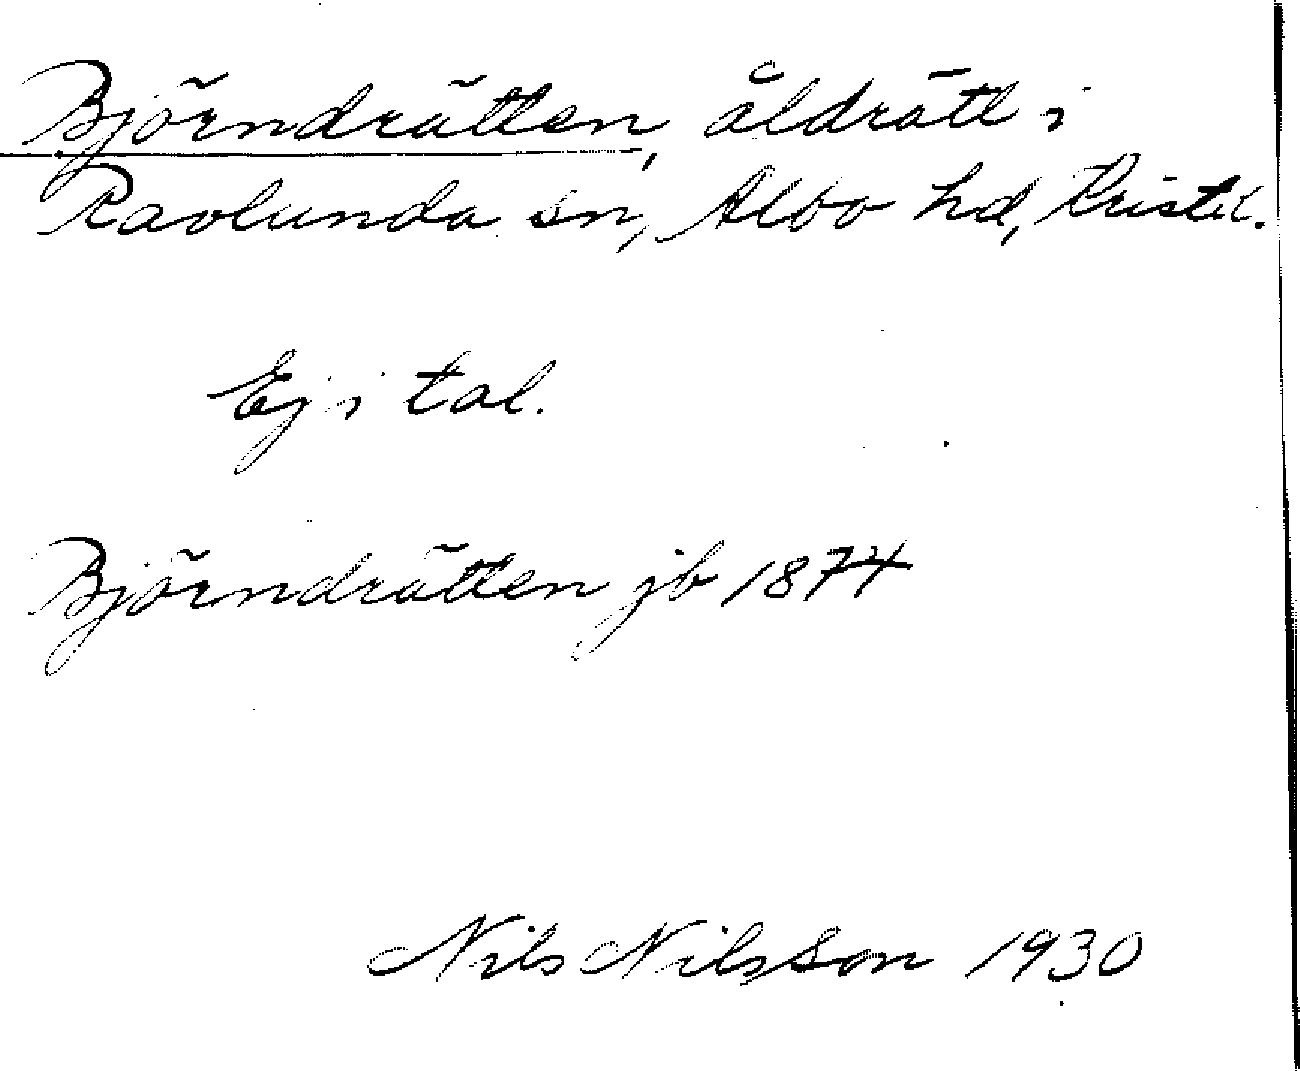 Björndrätten, åldrätt i
Ravlunda sn, Albo hd, Kristl.
Ej i tal.
Björndrätten jb 1874
Nils Nilsson 1930